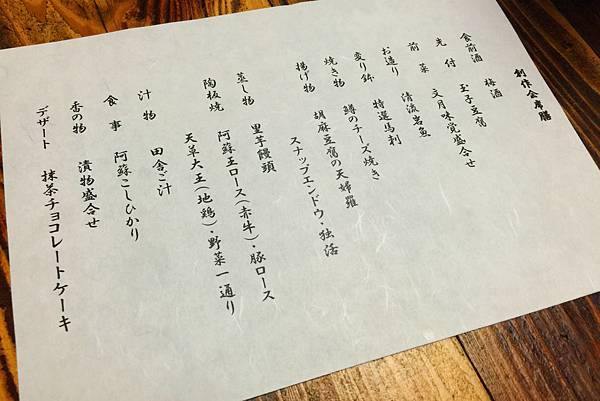 創作会席膳
食前酒 梅酒
先付 玉子豆腐
前菜 文月味覚盛合せ
お造り 清流岩魚
変り鉢 特選馬刺
焼き物 鱒のチーズ焼き
揚げ物 胡麻豆腐の天婦羅
スナップエンドウ・独活
蒸し物 里芋饅頭
陶板焼 阿蘇王ロース(赤牛)・豚ロース
天草大王(地鶏)・野菜一通り
汁物 田舎汁
食事 阿蘇こしひかり
香の物 漬物盛合せ
デザート 抹茶チョコレートケーキ